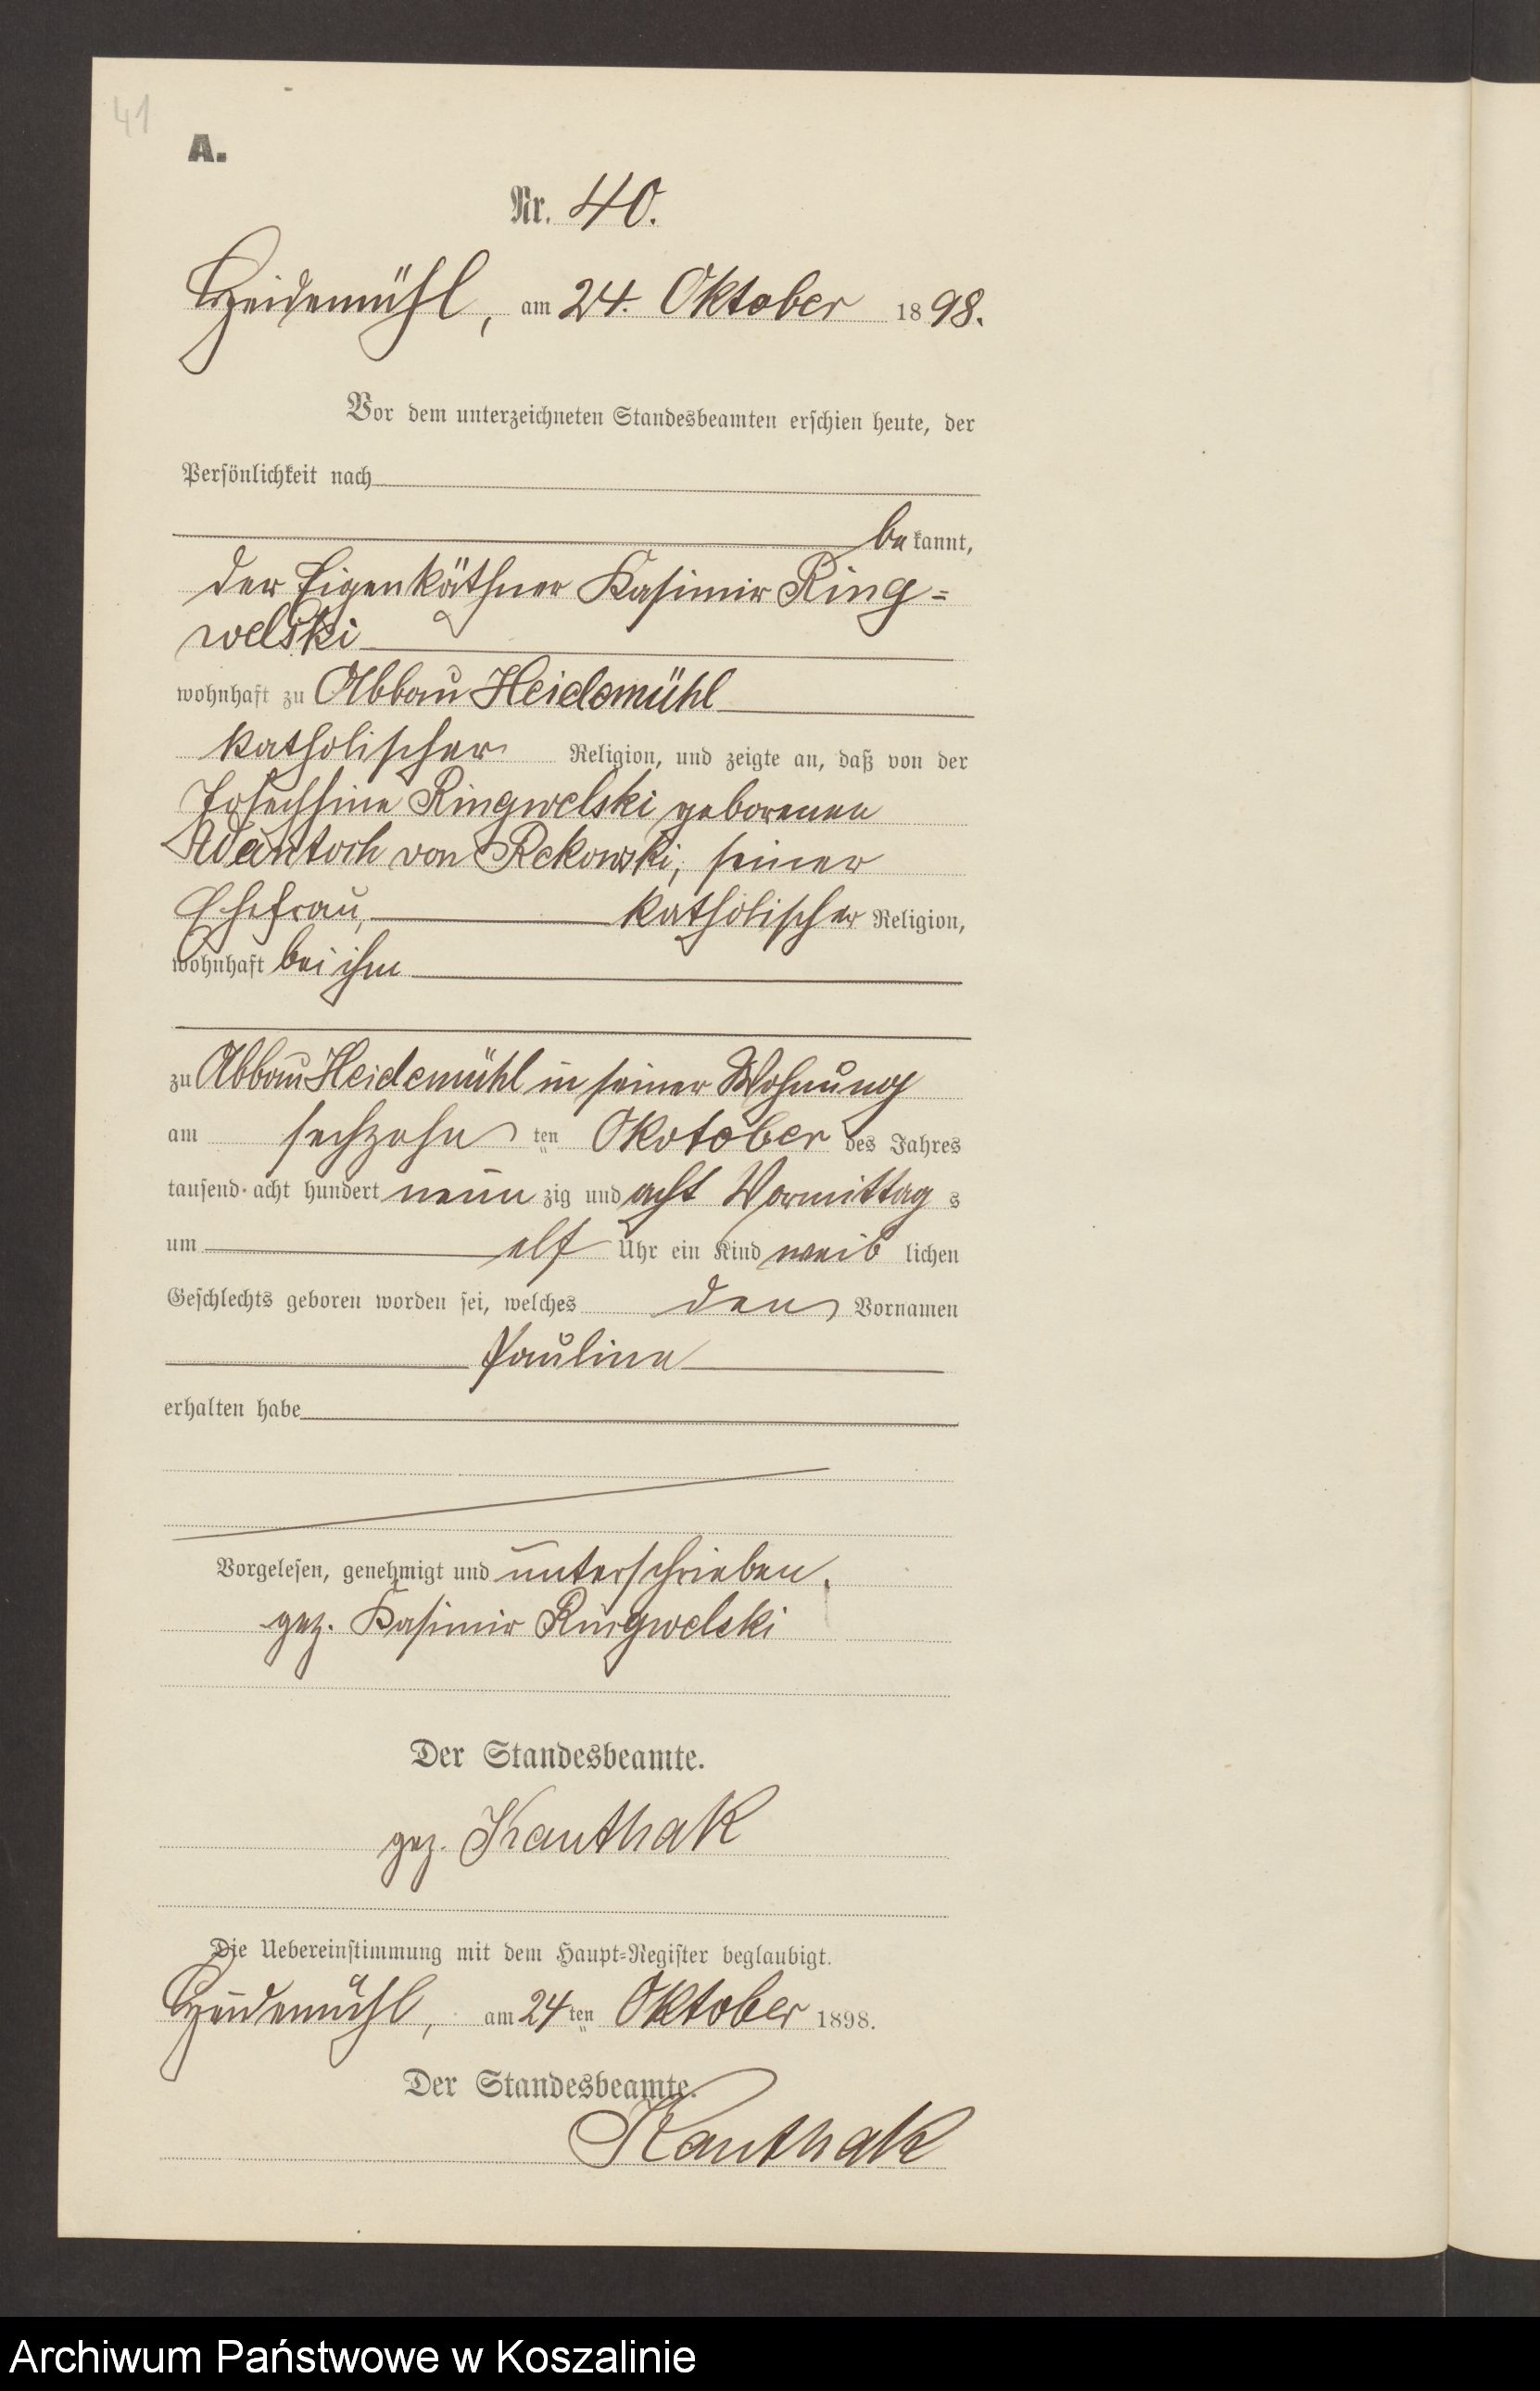 41
A.
Nr. 40.
Heidemühl, am 24. Oktober 1898.
Vor dem unterzeichneten Standesbeamten erschien heute, der
Persönlichkeit nach
bekannt,
der Eigenkäthner Kasimir Ring=
welski
wohnhaft zu Abbau Heidemühl
katholischer Religion, und zeigte an, daß von der
Josephine Ringwelski geborenen
Wantoch von Rekowski, seiner
Ehefrau, katholischer Religion,
wohnhaft bei ihm
zu Abbau Heidemühl in seiner Wohnung
am sechzehn ten Okotober des Jahres
tausend acht hundert neun zig und acht Vormittag s
um elf Uhr ein Kind weib lichen
Geschlechts geboren worden sei, welches den Vornamen
Pauline
erhalten habe
Vorgelesen, genehmigt und unterschrieben.
gez. Kasimir Ringwelski
Der Standesbeamte.
gez. Kauthak
Die Uebereinstimmung mit dem Haupt=Register beglaubigt.
Heidemühl, am 24 ten Oktober 1898.
Der Standesbeamte.
Kauthak
Archiwum Państwowe w Koszalinie